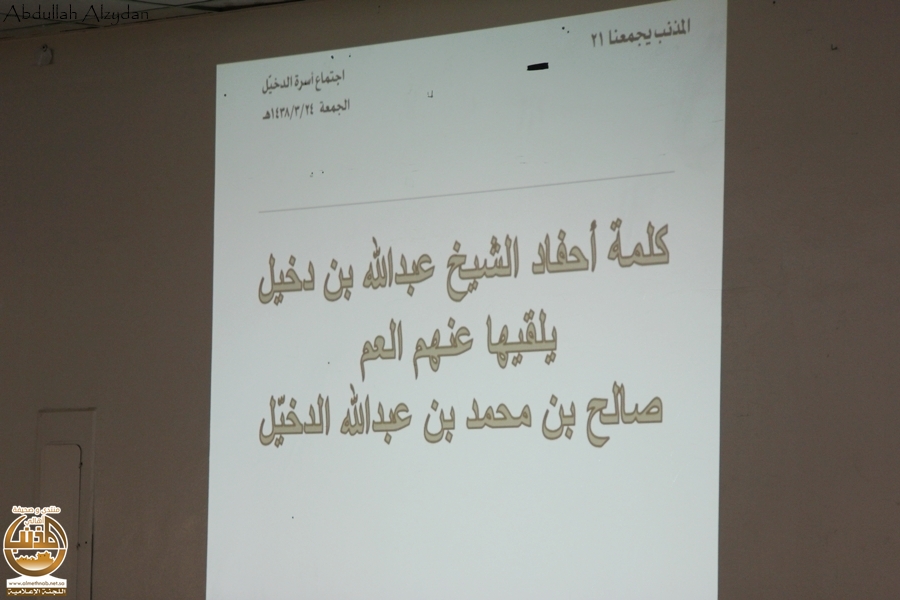 Abdullah Alzydan
المذنب يجمعنا ٢١
اجتماع أسرة الدخيّل
الجمعة ١٤٣٨/٣/٢٤هـ
كلمة أحفاد الشيخ عبدالله بن دخيل
يلقيها عنهم العم
صالح بن محمد بن عبدالله الدخيّل
منتدى و صحيفة
أهالي
المذنب
www.almethnab.net.sa
اللجنة الإعلامية